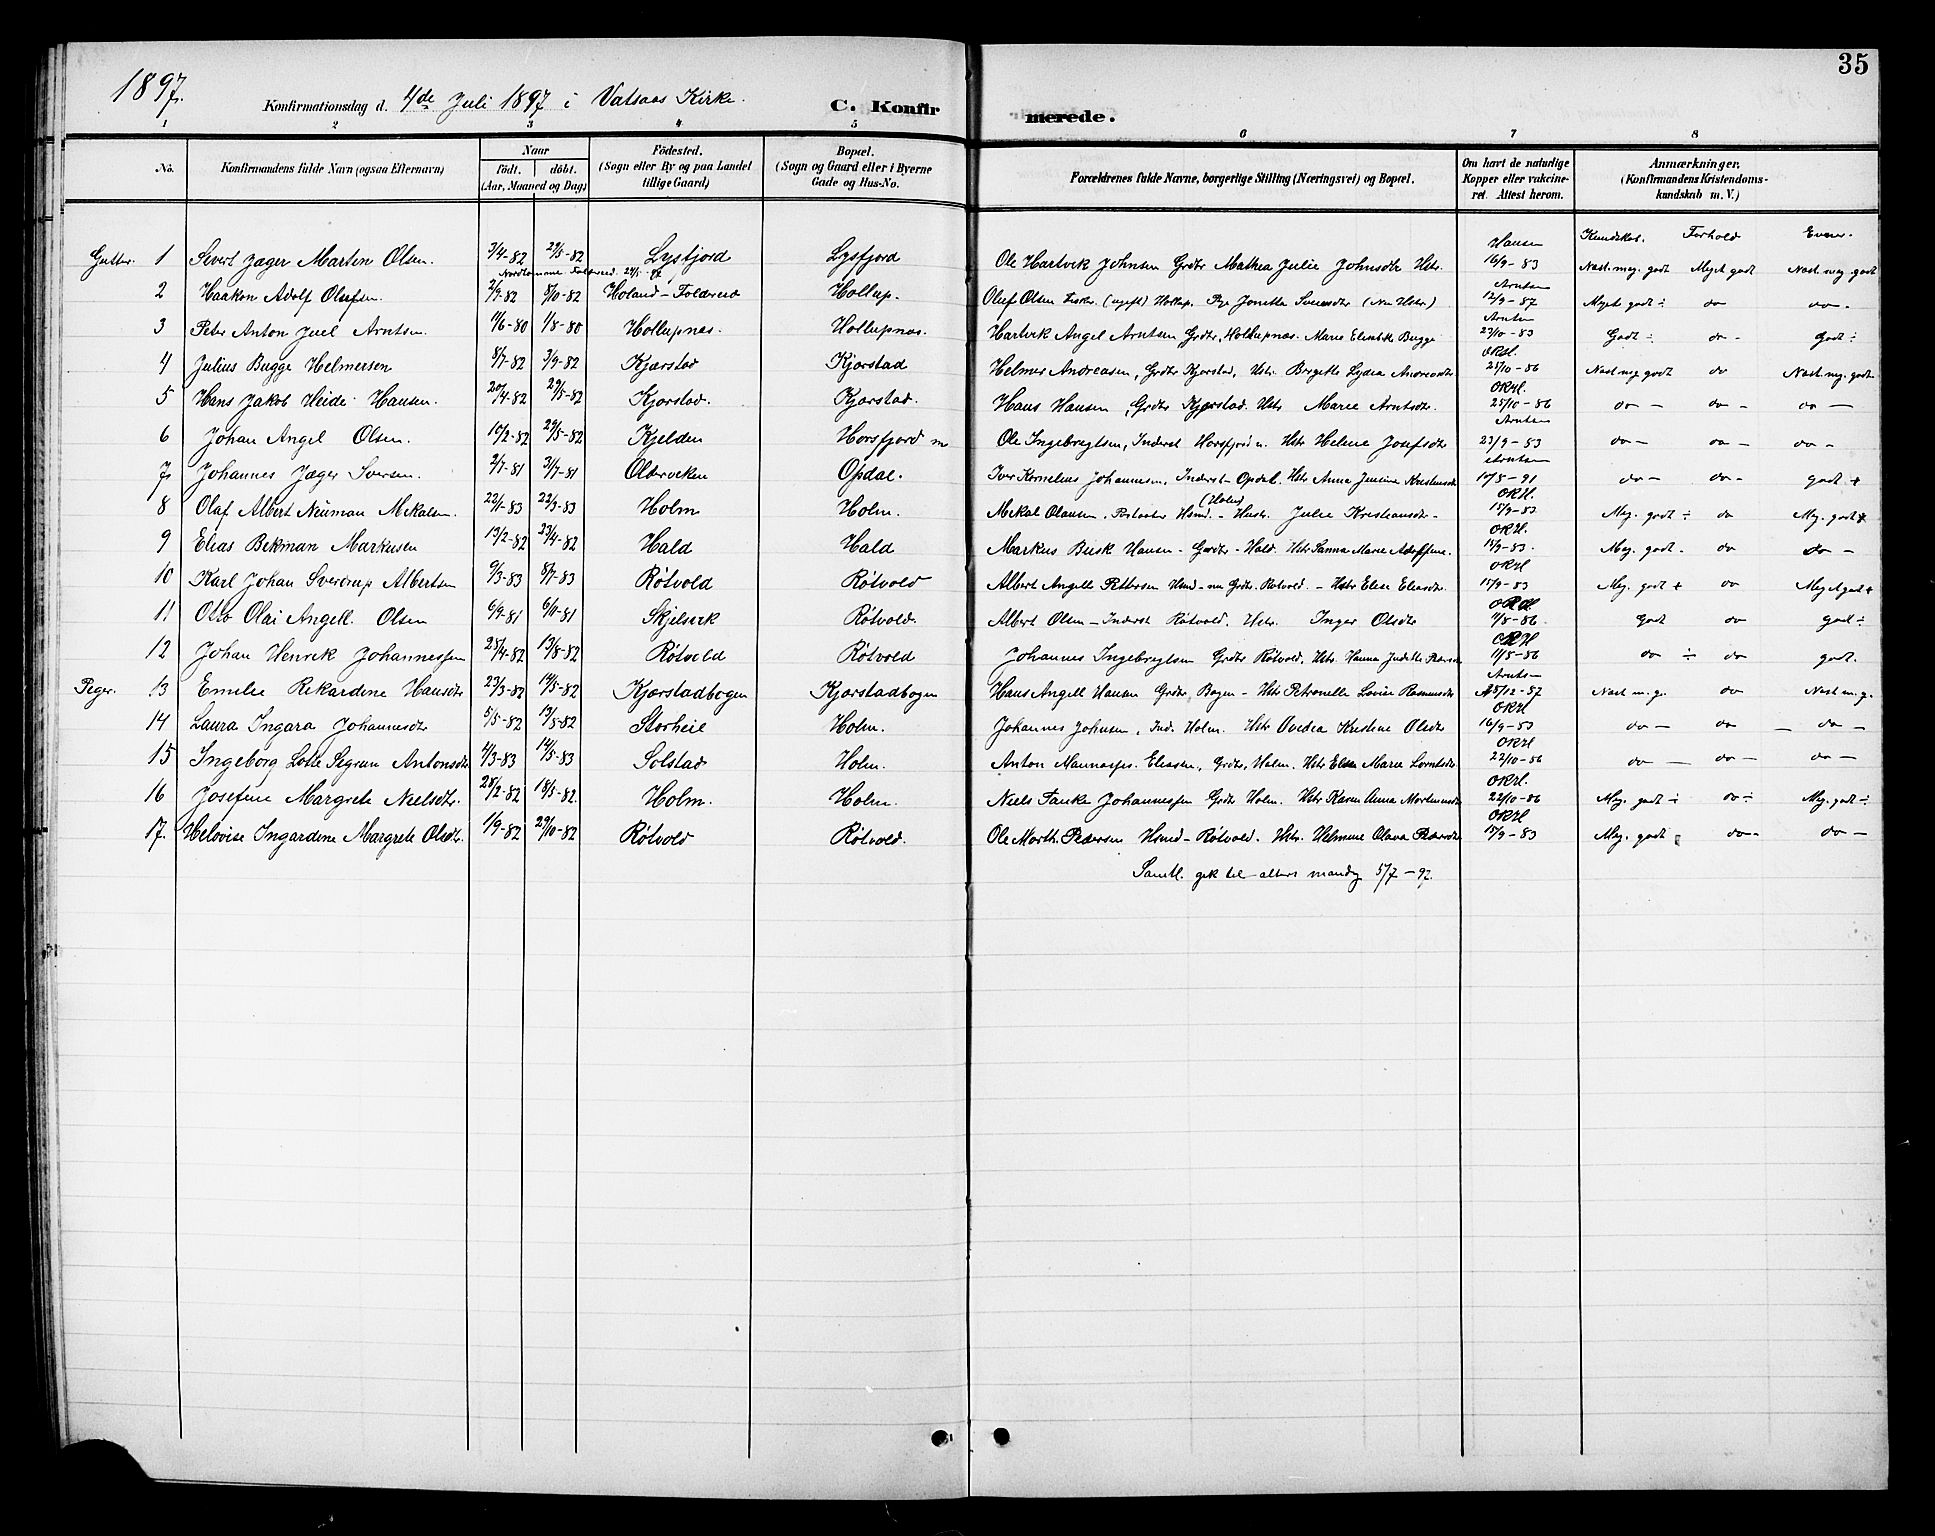 35
1897.
Konfirmationsdag d. 4de Juli 1897 i Vatsaas Kirke. C. Konfirmerede.
1 2 3 4 5 6 7 8
No. Konfirmandens fulde Navn (ogsaa Efternavn) Naar födt. döbt. (Aar, Maaned og Dag) Födested. (Sogn eller By og paa Landet tillige Gaard) Bopæl. (Sogn og Gaard eller i Byerne Gade og Hus-No. Forældrenes fulde Navne, borgerlige Stilling (Næringsvei) og Bopæl. Om havt de naturlige Kopper eller vakcineret. Attest herom. Anmærkninger. (Konfirmandens Kristendomskundskab m. V.)
Kundskab. Forhold Evner.
Gutter. 1 Sivert Jæger Martin Olsen. 3/4-82 29/5-82 Lysfjord Lysfjord Ole Hartvik Johnsen Grdbr Mathea Julie Johnsdtr Hstr. Hansen 16/9-83 Næst. meg. godt Meget godt Næst. meg. godt
2 Haakon Adolf Olufsen. 2/9-82 8/10-82 Holand-Foldereid Hollup. Oluf Olsen Fisker. (ugift) Hollup. Pige Jonette Sivertsdtr (Nu Hstr.) Arntsen 12/9-87 Meget godt ÷ do do-
3 Peter Anton Juel Arntsen. 11/6-80 1/8-80 Hollupnæs. Hollupnæs. Hartvik Angel Arntsen Grdbr, Hollupnæs. Marie Elisabeth Bugge Arntsen 23/10-83 Godt ÷ do- Godt ÷
4 Julius Bugge Helmersen 8/7-82 3/9-82 Kjærstad Kjærstad Helmer Andreasen, Grdbr Kjærstad, Hstr. Bergitte Lydia Andreasdtr OKH. 25/10-86 Næst meg. godt do Næst. meg. godt
5 Hans Jakob Heide Hansen. 20/4-82 29/5-82 Kjærstad. Kjærstad. Hans Hansen, Grdbr Kjærstad. Hstr Marie Arntsdtr. OKH. 25/10-86 do- do- do-
6 Johan Angel Olsen. 10/2-82 29/5-82 Kjelden Horsfjord Ole Ingebrigtsen, Inderst Horsfjord Hstr Helene Josefsdtr Arntsen 23/9-83 do- do- do-
7 Johannes Jæger Iversen. 2/7-81 31/7-81 Olterviken Opdal. Iver Kornelius Johannesen, Inderst-Opdal. Hstr Anna Jensine Kristensdtr Arntsen 10/8-91 do- do- godt +
8 Olaf Albert Neuman Mikalsen. 22/1-83 22/3-83 Holm Holm. Mikal Olausen, Hsmd. (Holm) - Hustr. Julie Kristiansdtr- OKH. 15/9-83 Meg. godt ÷ do Meg. godt
9 Elias Bekman Markusen 13/2-82 23/4-82 Hald Hald Markus Busk Hansen - Grdbr - Hald. Hstr Sanna Marie OKH. 15/9-83. Meg. godt. do do-
10 Karl Johan Sverdrup Albertsen 9/3-83 8/7-83 Rötvold Rötvold Albert Angell Pettersen Hsmd-nu Grdbr. Rötvold. - Hstr Elise Eliasdtr. OKH 15/9-83 Meg. godt + do Meget godt +
11 Otto Olai Angell. Olsen 6/9-81 6/11-81 Skjelvik Rötvold. Albert Olsen-Inderst Rötvold. Hstr. Inger Olsdtr OKH. 11/8-86. Godt do godt ÷
12 Johan Henrik Johannessen 25/4-82 13/8-82 Rötvold Rötvold Johannes Ingebrigtsen Grdbr Rötvold. Hstr. Hanna OKH 11/8-86 do ÷ do godt.
Piger. 13 Emelie Rikardine Hansdtr 23/3-82 14/5-82 Kjærstadbogen Kjærstadbogen Hans Angell Hansen Grdbr, Bogen - Hstr Petronelle Lovise Rasmusdtr Arntsen 5/12-87 Næst m.g. do Næst m.g.
14 Laura Ingara Johannesdtr 5/5-82 13/8-82 Storheil Holm. Johannes Johnsen, Ind. Holm. Hstr Ovedia Kristine Olsdtr OKH 16/9-83 do- do do-
15 Ingeborg Lotte Sigrun Antonsdtr 4/3-83 14/5-83 Solstad Holm. Anton Eliassen, Grdbr, Holm. Hstr Elen Marie Lorntsdtr. OKH 22/10-86 do- do- do-
16 Josefine Margrete Nielsdtr. 28/2-82 18/5-82. Holm. Holm. Niels Tanke Johannessen Grdbr Holm. Hstr Karen Anna Mortensdtr OKH. 22/10-86 Meg. godt ÷ do ÷ Meg. godt ÷
17. Helovise Ingardine Margrete Olsdtr. 1/9-82 29/10-82 Rötvold Rötvold. Ole Morth. Pedersen Hsmd-Rötvold. Hstr. Helmine Olava Pedersdtr OKH 15/9-83 Meg. godt do- do-
Samtl. gik til alters mandag 5/7-97.